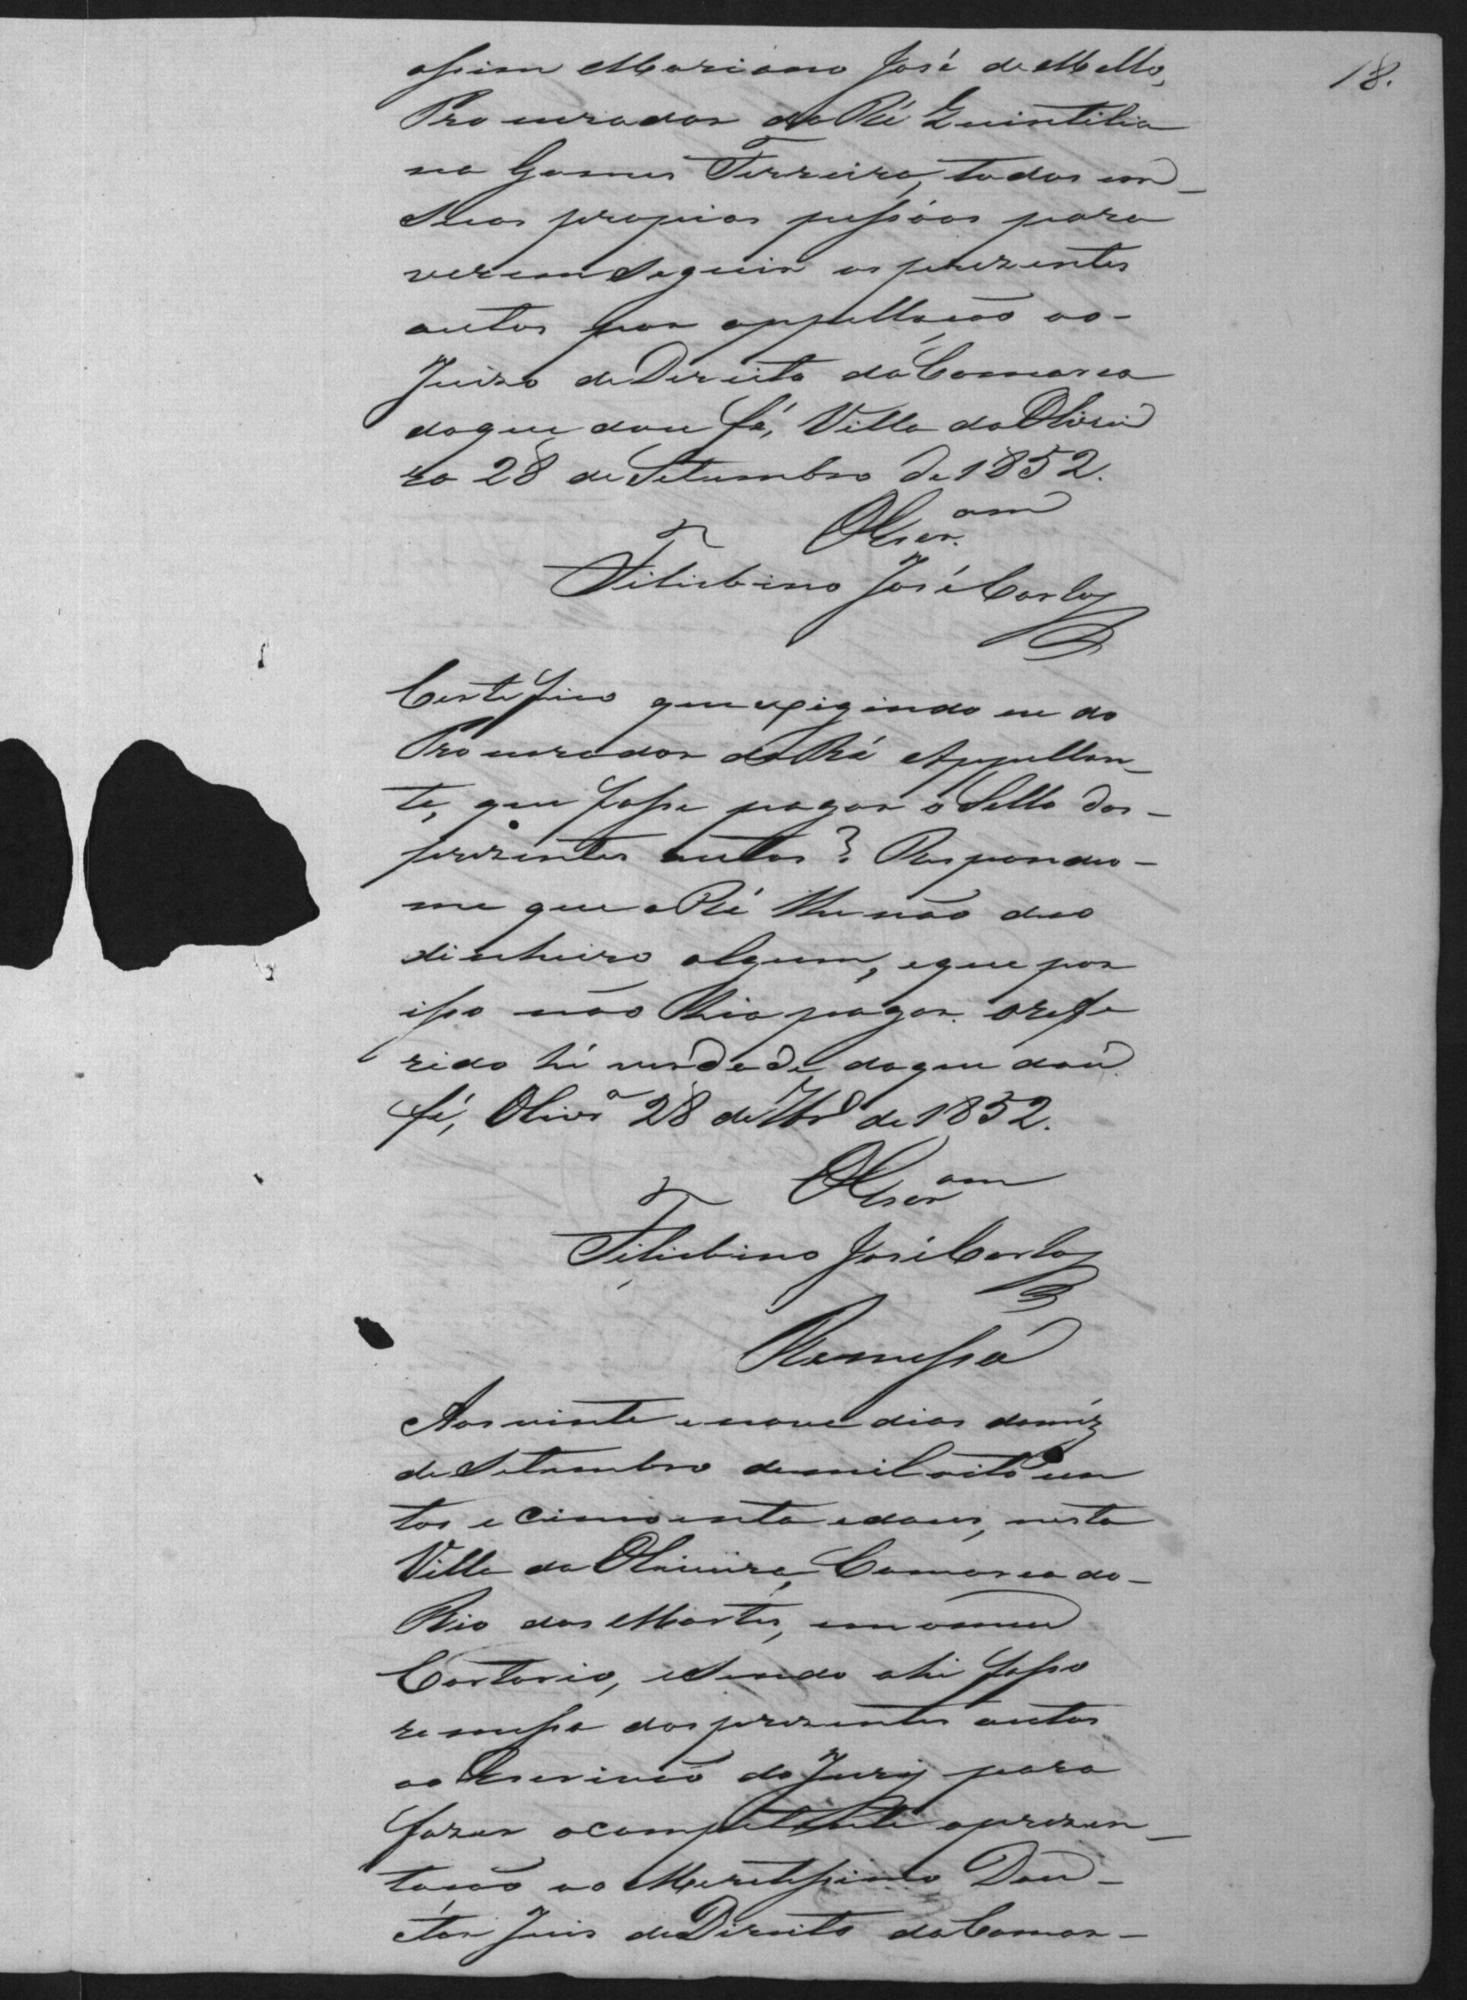 18.
assim Mariano José de Mello,
Procurador da Ré Quintilia
na Gomes Ferreira, todos em
suas propias pessôas para
verem seguir os prezentes
autos por appellação ao
Juizo de Direito da Comarca
do que dou fé, Villa da Olivei
ra 28 de Setembro de 1852.
O Escr.am
Filisbino José Carlos
Certifico que exigindo eu do
Procurador da Ré Appellan
te, que fosse pagar o Sello dos
prezentes autos? Respondeo
me que a Ré lhe não deo
dinheiro algum, e que por
isso não hia pagar. O refe
rido hé verdade do que dou
fé, Olivra 28 de 7bro de 1852.
O Escr.am
Filisbino José Carlos
Remessa
Aos vinte e nove dias do mez
de Setembro de mil oito cen
tos e cincoenta e dous, nesta
Villa da Oliveira, Comarca do
Rio das Mortes, em o meu
Cartorio, e sendo ahi fasso
remessa dos prezentes autos
ao Escrivão do Jury para
fazer a competente aprezen
tação ao Meretissimo Dou
ctor Juis de Direito da Comar-